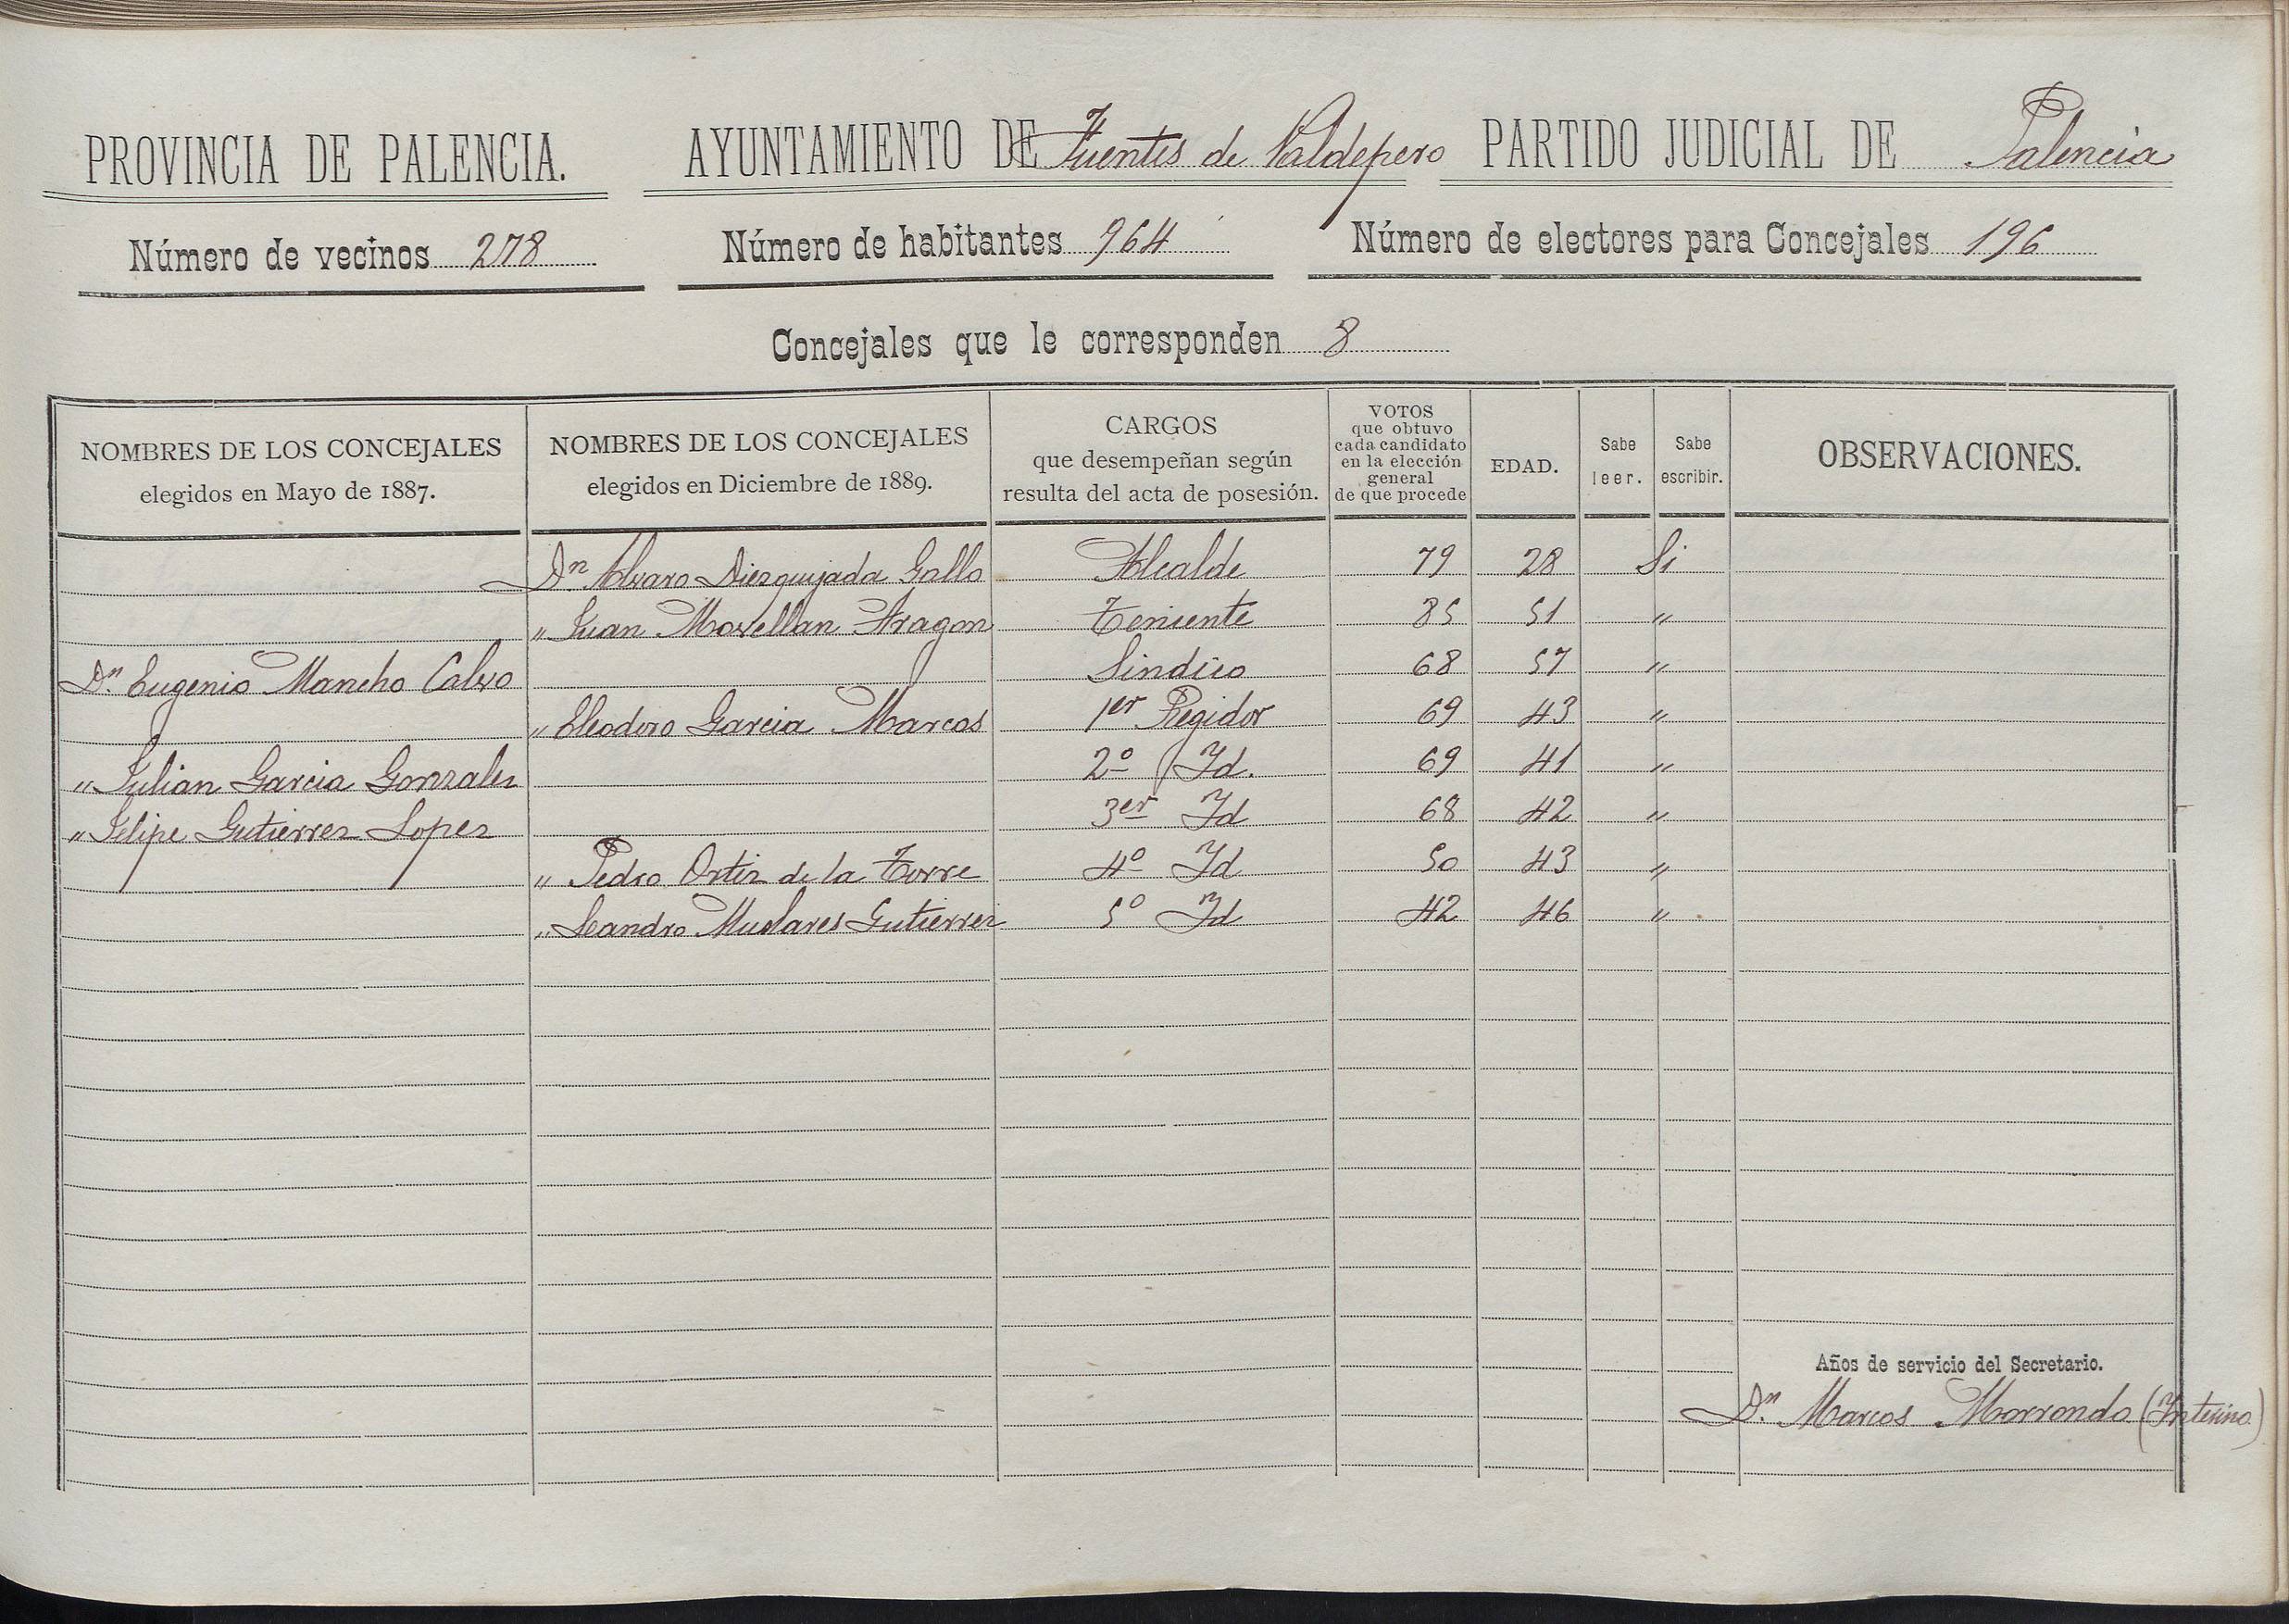 PROVINCIA DE PALENCIA. AYUNTAMIENTO DE Fuentes de Valdepero PARTIDO JUDICIAL DE Palencia
Número de vecinos 278 Número de habitantes 964 Número de electores para Concejales 196
Concejales que le corresponden 8
NOMBRES DE LOS CONCEJALES elegidos en Mayo de 1887. NOMBRES DE LOS CONCEJALES elegidos en Diciembre de 1889. CARGOS que desempeñan según resulta del acta de posesión. VOTOS que obtuvo cada candidato en la elección general de que procede EDAD. Sabe leer. Sabe escribir. OBSERVACIONES.
Dn Alvaro Diezquijada Gallo Alcalde 79 28 Si
" Juan Movellan Aragon Teniente 85 51 "
Dn. Eugenio Mancho Calvo Sindico 68 57 "
" Eleodoro Garcia Marcos 1er Regidor 69 43 "
" Julian Garcia Gonzalez 2º Id. 69 41 "
" Felipe Gutierrez Lopez 3er Id 68 42 "
" Pedro Ortiz de la Torre 4º Id 50 43 "
" Leandro Gutierrez 5º Id 42 46 "
Años de servicio del Secretario.
Dn. Marcos Morrondo (Interino)